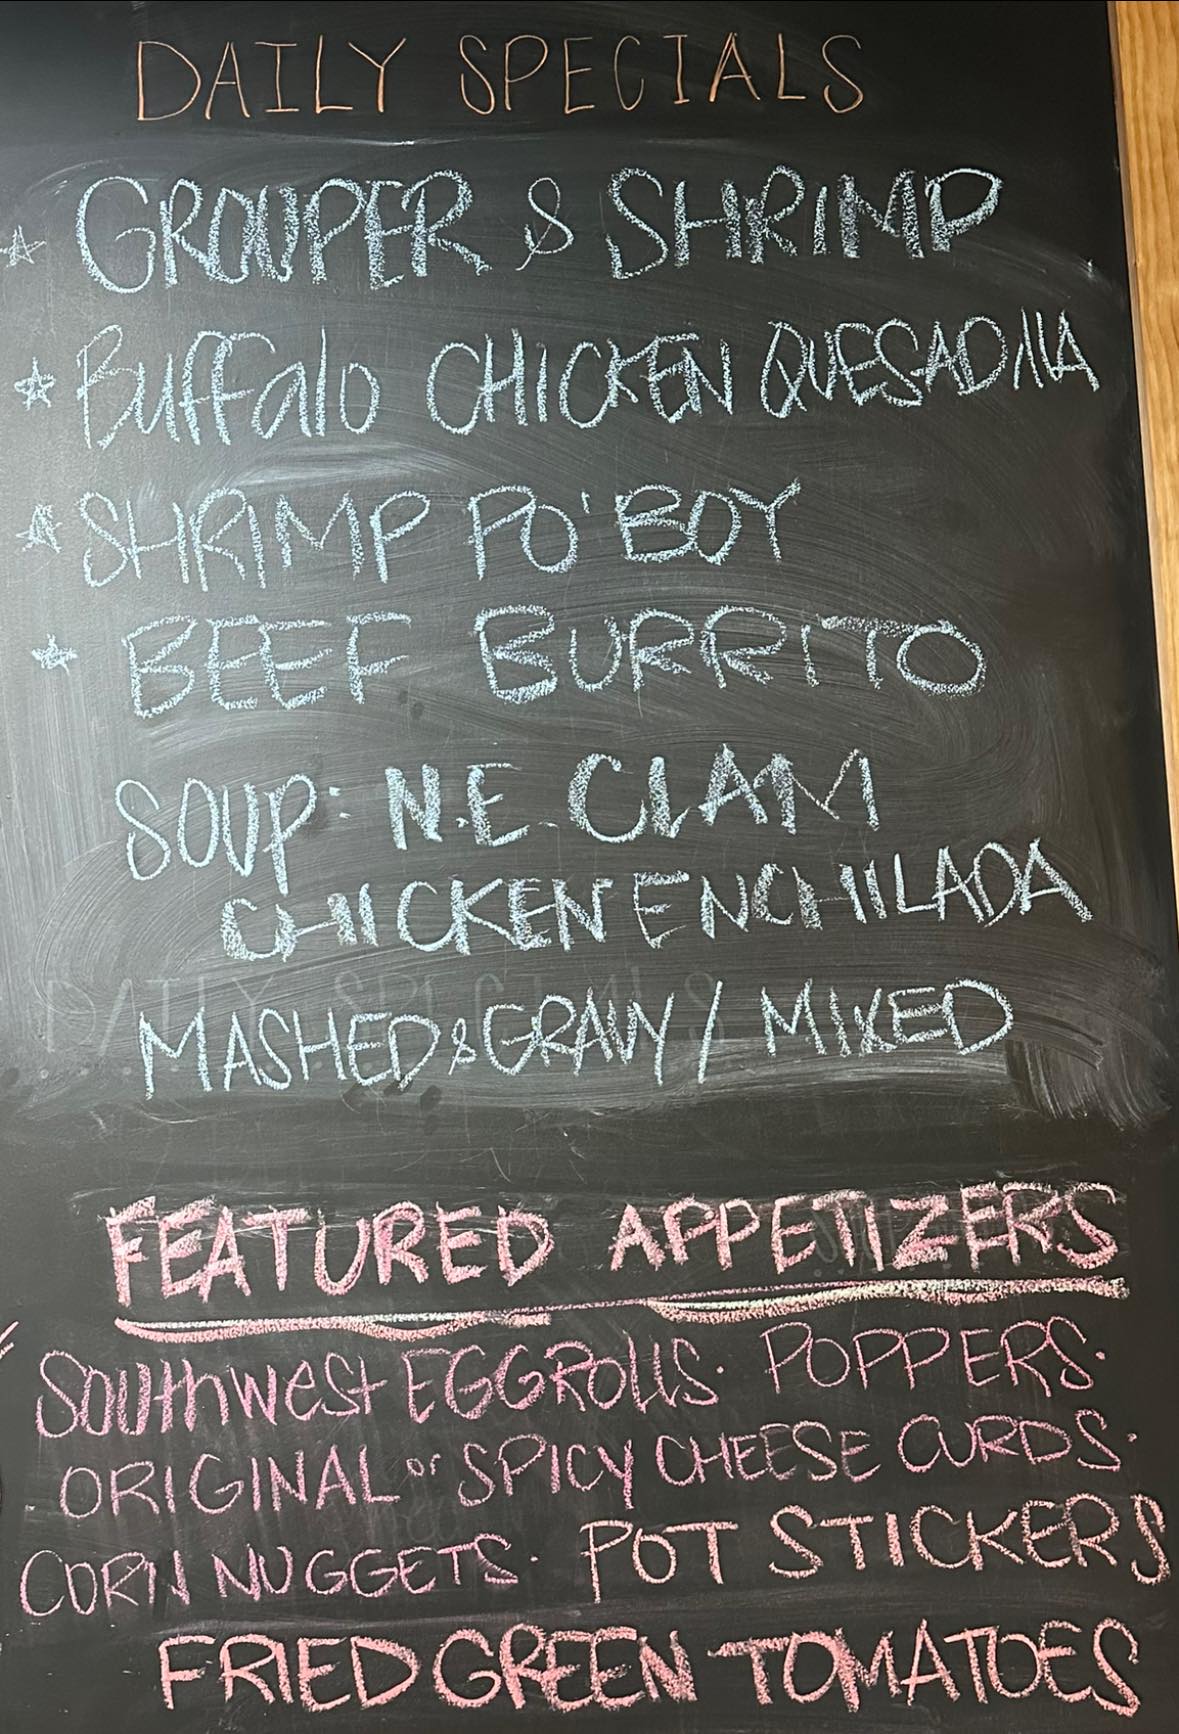 DAILY SPECIALS
GROUPER & SHRIMP
Buffalo CHICKEN QUESADILLA
SHRIMP PO'BOY
BEEF BURRITO
SOUP: N.E. CLAM
CHICKEN ENCHILADA
MASHED & GRAVY / MIXED
DAILY SPECIALS
FEATURED APPETIZERS
SOUTHWEST EGGROLLS · POPPERS ·
ORIGINAL or SPICY CHEESE CURDS ·
CORN NUGGETS · POT STICKERS
FRIED GREEN TOMATOES